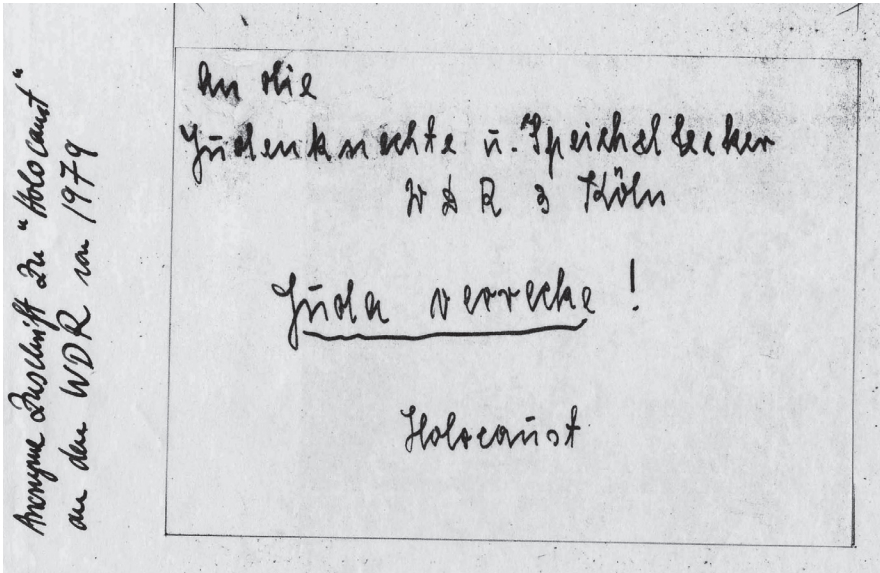 Anonyme Zuschrift zu "Holocaust"
an den WDR von 1979
An die
Judenknechte u. Speichellecker
WDR 3 Köln
Juda verrecke!
Holocaust